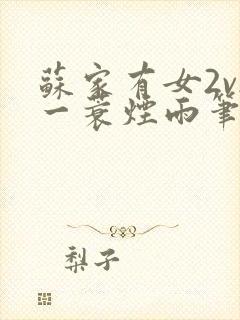 蘇家有女2v
一蓑煙雨筆
梨子